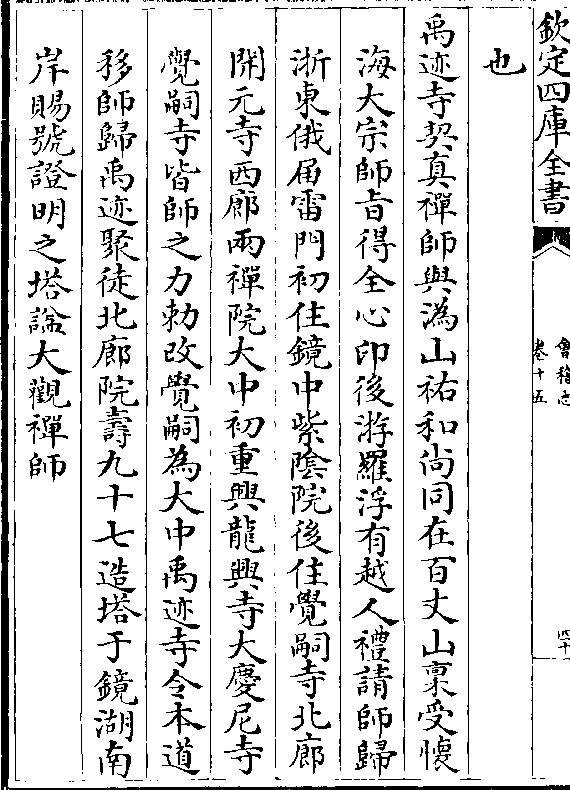 欽定四庫全書
會稽志
卷十五
四十
也
禹迹寺契真禪師與溈山祐和尚同在百丈山稟受懷
海大宗師旨得全心印後游羅浮有越人禮請師歸
浙東俄届雷門初住鏡中紫陰院後住覺嗣寺北廊
開元寺西廊兩禪院大中初重興龍興寺大慶尼寺
覺嗣寺皆師之力勅改覺嗣為大中禹迹寺令本道
移師歸禹迹聚徒北廊院壽九十七造塔于鏡湖南
岸賜號證明之塔諭大觀禪師